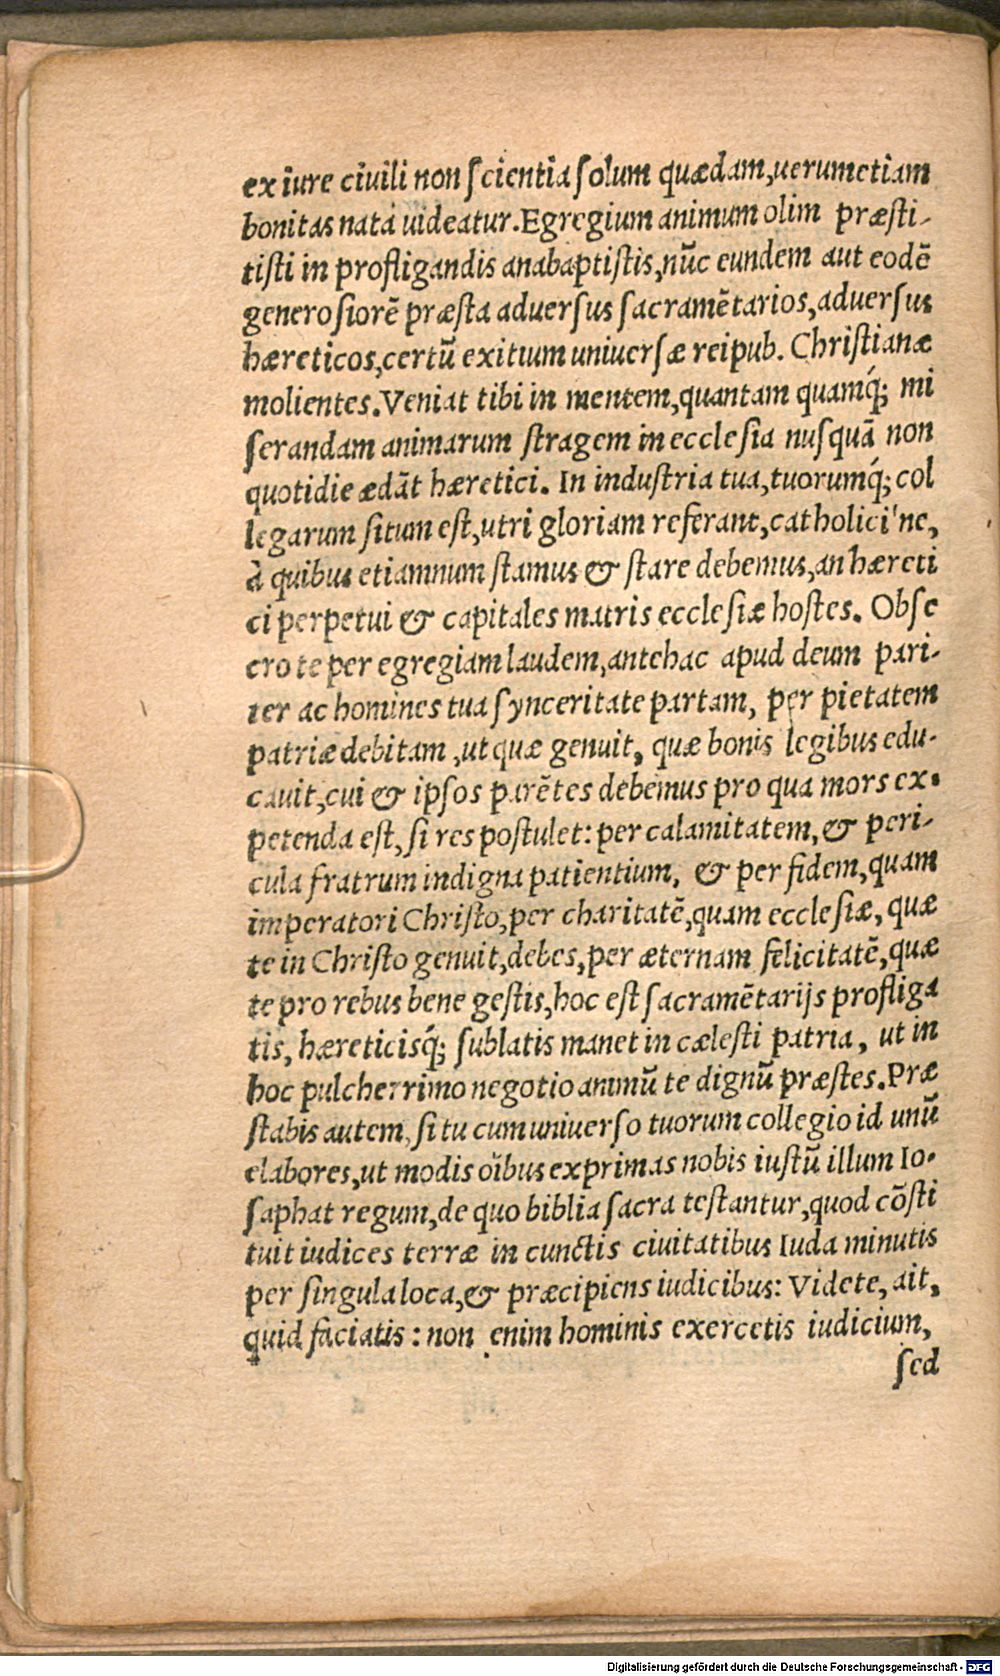 ex iure ciuili non scientia solum quædam, uerumetiam
bonitas nata uideatur. Egregium animum olim præsti-
tisti in profligandis anabaptistis, nūc eundem aut eodē
generosiorē præsta aduersus sacramētarios, aduersus
hæreticos, certū exitium uniuersæ reipub. Christianæ
molientes. Veniat tibi in mentem, quantam quamq́; mi
serandam animarum stragem in ecclesia nusquā non
quotidie ædāt hæretici. In industria tua, tuorumq́; col
legarum situm est, utri gloriam referant, catholici'ne,
à quibus etiamnum stamus & stare debemus, an hæreti
ci perpetui & capitales matris ecclesiæ hostes. Obse
cro te per egregiam laudem, antehac apud deum pari-
ter ac homines tua synceritate partam, per pietatem
patriæ debitam, ut quæ genuit, quæ bonis legibus edu-
cauit, cui & ipsos parētes debemus pro qua mors ex-
petenda est, si res postulet: per calamitatem, & peri-
cula fratrum indigna patientium, & per fidem, quam
imperatori Christo, per charitatē, quam ecclesiæ, quæ
te in Christo genuit, debes, per æternam felicitatē, quæ
te pro rebus bene gestis, hoc est sacramētarijs profliga
tis, hæreticisq́; sublatis manet in cælesti patria, ut in
hoc pulcherrimo negotio animū te dignū præstes. Præ
stabis autem, si tu cum uniuerso tuorum collegio id unū
elabores, ut modis oībus exprimas nobis iustū illum Io-
saphat regum, de quo biblia sacra testantur, quod cōsti
tuit iudices terræ in cunctis ciuitatibus Iuda minutis
per singula loca, & præcipiens iudicibus: Videte, ait,
quid faciatis: non enim hominis exercetis iudicium,
sed
Digitalisierung gefördert durch die Deutsche Forschungsgemeinschaft - DFG